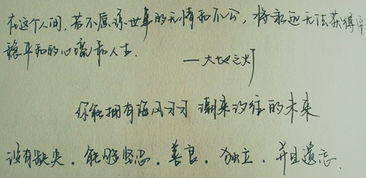 在这个人间，若不原谅世事的无情和不公，将永远无法获得平
稳平和的心境和人生。
——大地之灯
你能拥有海风习习 潮来汐往的未来
没有缺失，能够坚忍，善良，独立，并且遗忘。